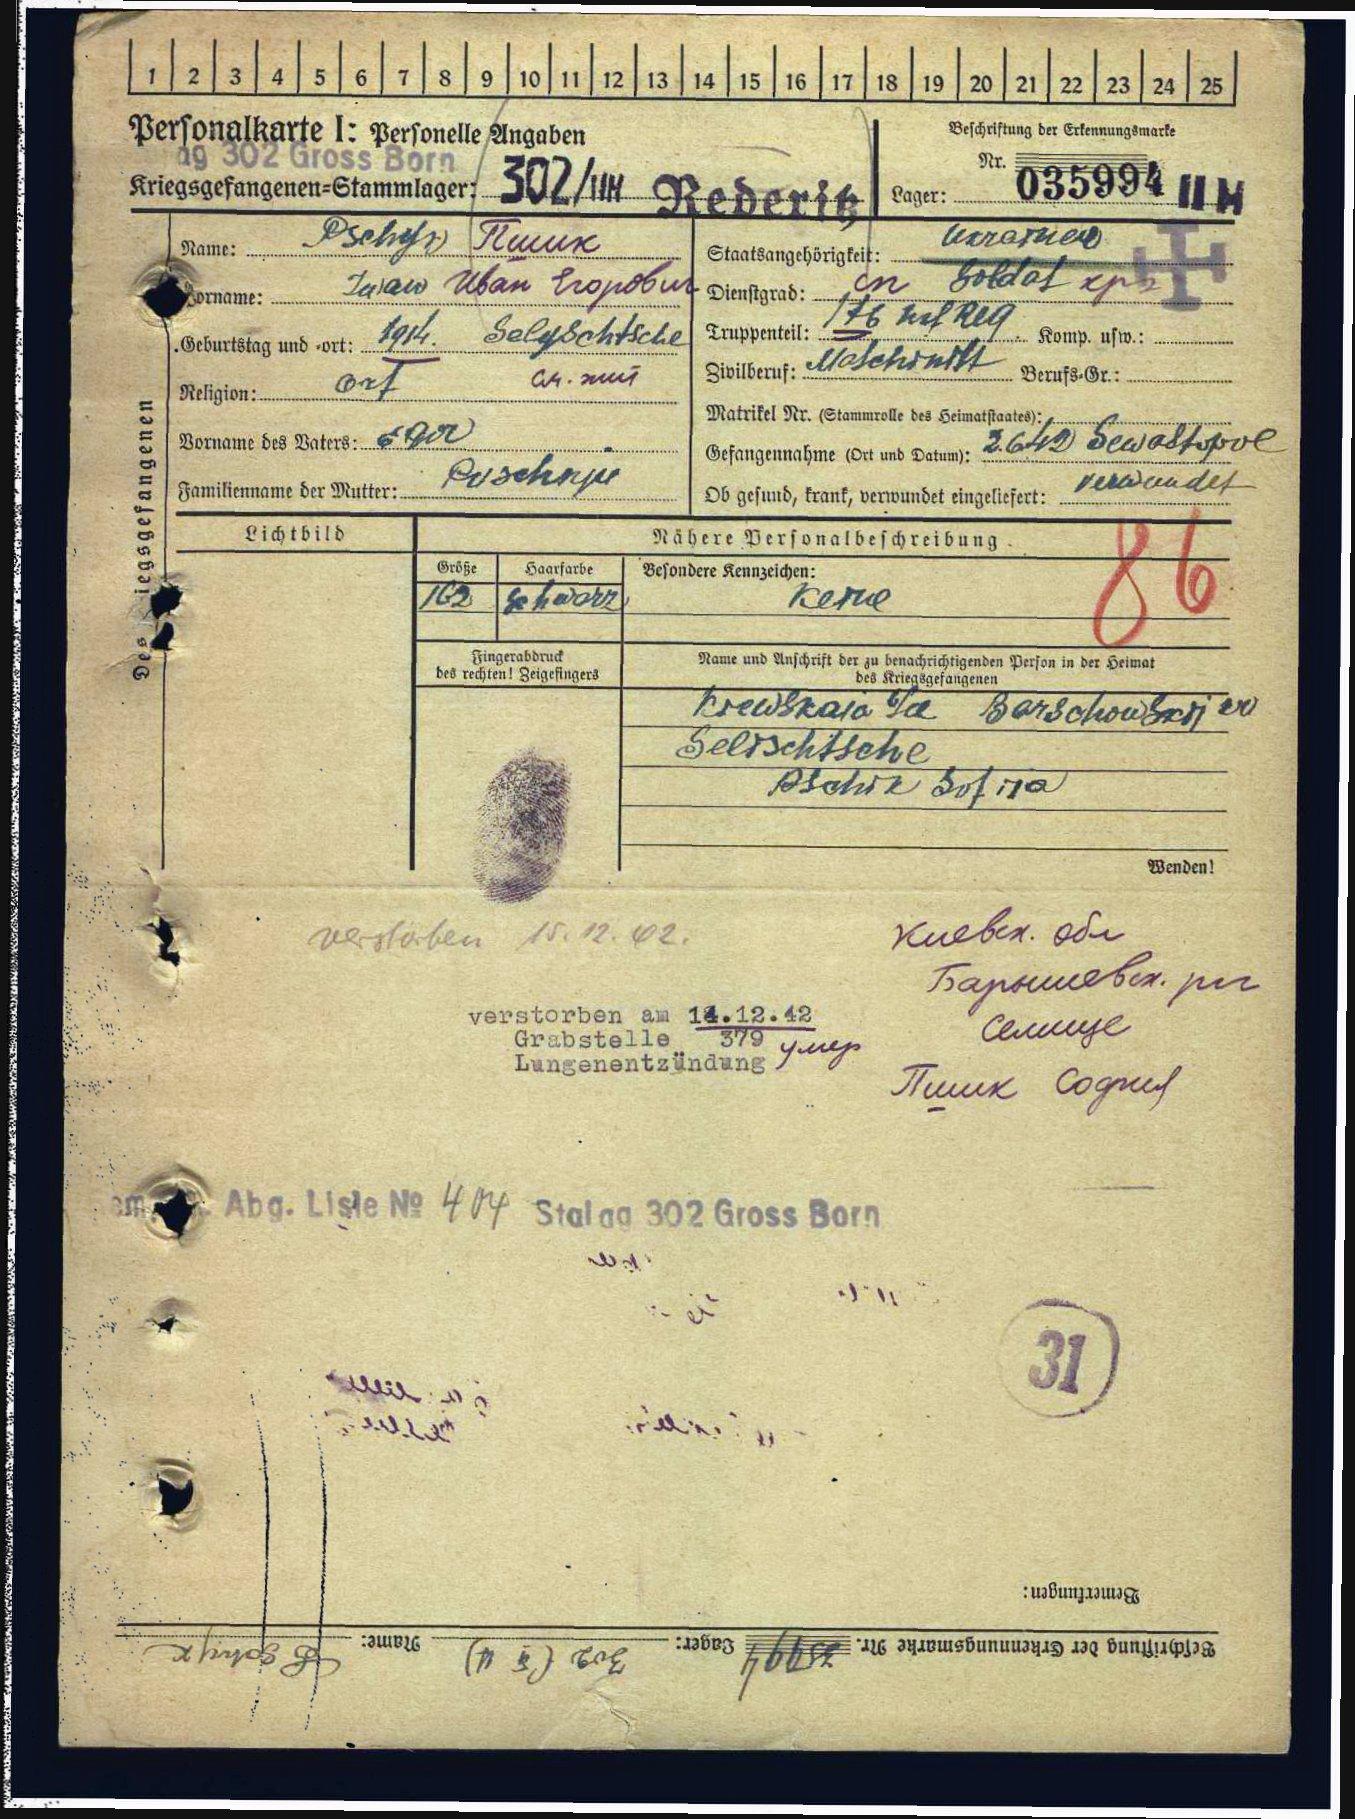 1 2 3 4 5 6 7 8 9 10 11 12 13 14 15 16 17 18 19 20 21 22 23 24 25
Personalkarte I: Personelle Angaben
Beschriftung der Erkennungsmarke
ag 302 Gross Born
Nr. 035994 II H
Kriegsgefangenen-Stammlager: 302/IIH Rederitz
Lager:
Des iegsgefangenen
Name: Pschyk Пшик
Vorname: Iwan Иван Егорович
Geburtstag und -ort: 1914. Selyschtsche
Religion: ort
Vorname des Vaters: Egor
Familienname der Mutter:
Staatsangehörigkeit: Ukrainer
Dienstgrad: Soldat
Truppenteil: 176 Inf Reg Komp. usw.:
Zivilberuf: Maschinist Berufs-Gr.:
Matrikel Nr. (Stammrolle des Heimatstaates):
Gefangennahme (Ort und Datum): 2.6.42 Sewastopol
Ob gesund, krank, verwundet eingeliefert: verwundet
Lichtbild
Nähere Personalbeschreibung
Größe Haarfarbe Besondere Kennzeichen:
162 schwarz Keine
86
Fingerabdruck
des rechten! Zeigefingers
Name und Anschrift der zu benachrichtigenden Person in der Heimat
des Kriegsgefangenen
Kiewskaia
Selischtsche
Pschik Sofija
Wenden!
verstorben 15.12.42.
Киевск. обл
Барышевск.
Селище
Пшик София
verstorben am 14.12.42
Grabstelle 379 умер
Lungenentzündung
Abg. Liste № 404 Stalag 302 Gross Born
31
Bemerkungen:
Beschriftung der Erkennungsmarke Nr. 35994 Lager: 302 (II H) Name: Pschyk